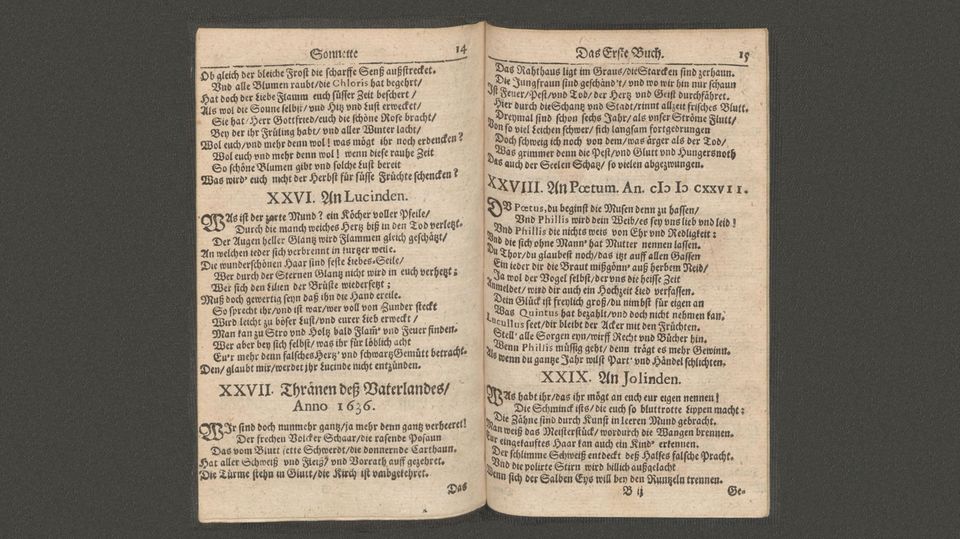 Sonnette 14
Ob gleich der bleiche Frost die scharffe Senß außstrecket.
Vnd alle Blumen raubt/die Chloris hat begehrt/
Hat doch der Liebe Flamm euch süsser Zeit beschert/
Als wol die Sonne selbst/vnd Hitz vnd Lust erwecket/
Sie hat/Herr Gottfried/euch die schöne Rose bracht/
Bey der ihr Früling habt/vnd aller Winter lacht/
Wol euch/vnd mehr denn wol! was mögt ihr noch erdencken?
Wol euch vnd mehr denn wol! wenn diese rauhe Zeit
So schöne Blumen gibt vnd solche Lust bereit
Was wird' euch nicht der Herbst für süsse Früchte schencken?
XXVI. An Lucinden.
WAs ist der zarte Mund? ein Köcher voller Pfeile/
Durch die manch weiches Hertz biß in den Tod verletzt.
Der Augen heller Glantz wird Flammen gleich geschätzt/
An welchen jeder sich verbrennt in kurtzer weile.
Die wunderschönen Haar sind feste Liebes-Seile/
Wer durch der Sternen Glantz nicht wird in euch verhetzt;
Wer sich den Lilien der Brüste widersetzt;
Muß doch gewertig seyn daß ihn die Hand ereile.
So sprecht ihr/vnd ist war/wer voll von Zunder steckt
Wird leicht zu böser Lust/vnd eurer Lieb erweckt/
Man kan zu Stro vnd Holtz bald Flam̃' vnd Feuer finden.
Wer aber bey sich selbst/was ihr für löblich acht
Eu'r mehr denn falsches Hertz' vnd schwartz Gemütt betracht.
Den/glaubt mir/werdet jhr Lucinde nicht entzünden.
XXVII. Thränen deß Vaterlandes/
Anno 1636.
WIr sind doch nunmehr gantz/ja mehr denn gantz verheeret!
Der frechen Völcker Schaar/die rasende Posaun
Das vom Blutt fette Schwerdt/die donnernde Carthaun.
Hat aller Schweiß vnd Fleiß/ vnd Vorrath auff gezehret.
Die Türme stehn in Glutt/die Kirch ist vmbgekehret.
Das
Das Erste Buch. 15
Das Rahthaus ligt im Graus/die Starcken sind zerhaun.
Die Jungfraun sind geschänd't/vnd wo wir hin nur schaun
Ist Feuer/Pest/vnd Tod/der Hertz vnd Geist durchfähret.
Hier durch die Schantz vnd Stadt/rinnt allzeit frisches Blutt.
Dreymal sind schon sechs Jahr/als vnser Ströme Flutt/
Von so viel Leichen schwer/sich langsam fortgedrungen
Doch schweig ich noch von dem/was ärger als der Tod/
Was grimmer denn die Pest/vnd Glutt vnd Hungersnoth
Das auch der Seelen Schatz/so vielen abgezwungen.
XXVIII. An Pœtum. An. cIɔ Iɔ cxxvII.
DV Pœtus, du beginst die Musen denn zu hassen/
Vnd Phillis wird dein Weib/es sey vns lieb vnd leid!
Vnd Phillis die nichts weis von Ehr vnd Redligkeit;
Vnd die sich ohne Mann' hat Mutter nennen lassen.
Du Thor/du glaubest noch/das itzt auff allen Gassen
Ein jeder dir die Braut mißgönn' auß herbem Neid/
Ja wol der Vogel selbst/der vns die heisse Zeit
Anmeldet/wird dir auch ein Hochzeit Lied verfassen.
Dein Glück ist freylich groß/du nimbst für eigen an
Was Quintus hat bezahlt/vnd doch nicht nehmen kan,
Lucullus seet/dir bleibt der Acker mit den Früchten.
Stell' alle Sorgen eyn/wirff Recht vnd Bücher hin.
Wenn Phillis müssig geht/denn trägt es mehr Gewinn.
Als wenn du gantze Jahr wilst Part' vnd Händel schlichten.
XXIX. An Jolinden.
WAs habt ihr/das ihr mögt an euch eur eigen nennen!
Die Schminck ists/die euch so bluttrotte Lippen macht;
Die Zähne sind durch Kunst in leeren Mund gebracht.
Man weiß das Meisterstück/wordurch die Wangen brennen.
Eur eingekaufftes Haar kan auch ein Kind' erkennen.
Der schlimme Schweiß entdeckt deß Halses falsche Pracht.
Vnd die polirte Stirn wird billich außgelacht
Wenn sich der Salben Eys will bey den Runtzeln trennen.
B ij Ge-